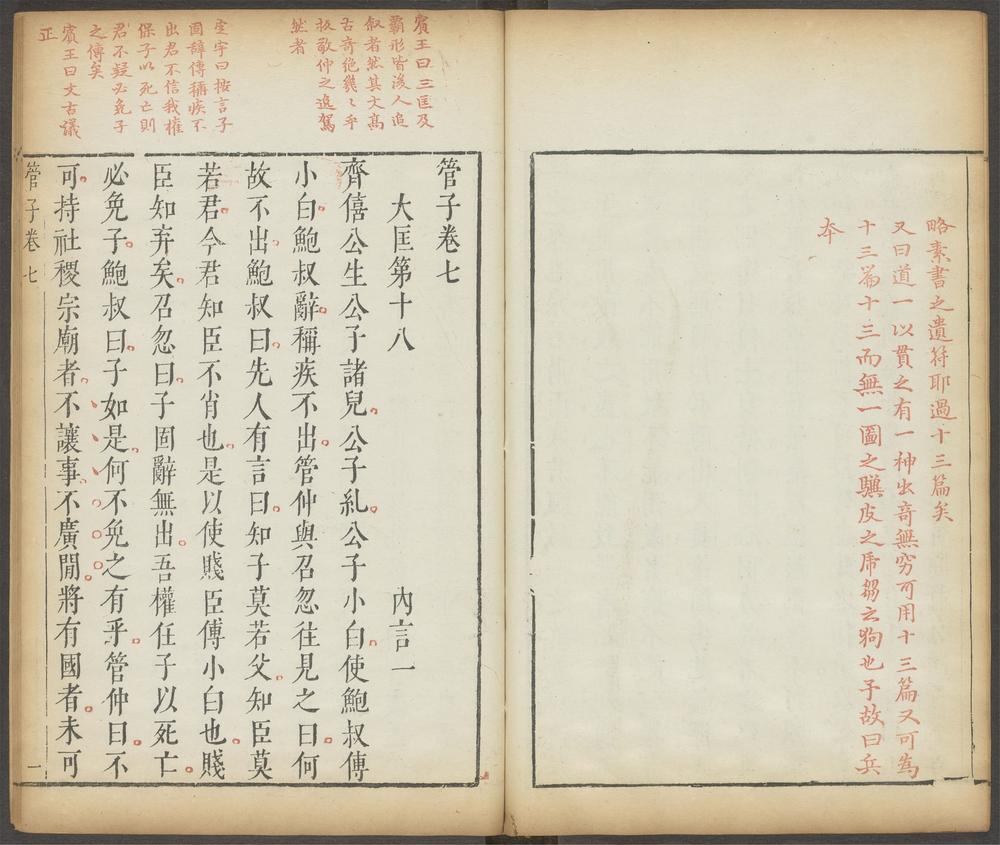 略素書之遺符耶過十三篇矣
又曰道一以貫之有一神出奇無窮可用十三篇又可為
十三篇十三而無一圖之驥皮之乕芻之狗也予故曰兵
本
賓王曰三匡及
霸形皆後人追
敘者然其文高
古奇絕幾〻乎
敬仲之逸駕
然者
宇曰按言子
固辭傳稱疾不
出君不信我權
保子以死亡則
君不疑必免子
之傳矣
賓王曰文古議
正
管子卷七
大匡第十八 內言一
齊僖公生公子諸兒公子糺公子小白使鮑叔傅
小白鮑叔辭稱疾不出管仲與召忽往見之曰何
故不出鮑叔曰先人有言曰知子莫若父知臣莫
若君今君知臣不肖也是以使賤臣傅小白也賤
臣知弃矣召忽曰子固辭無出吾權任子以死亡
必免子鮑叔曰子如是何不免之有乎管仲曰不
可持社稷宗廟者不讓事不廣閒將有國者未可
管子卷七 一